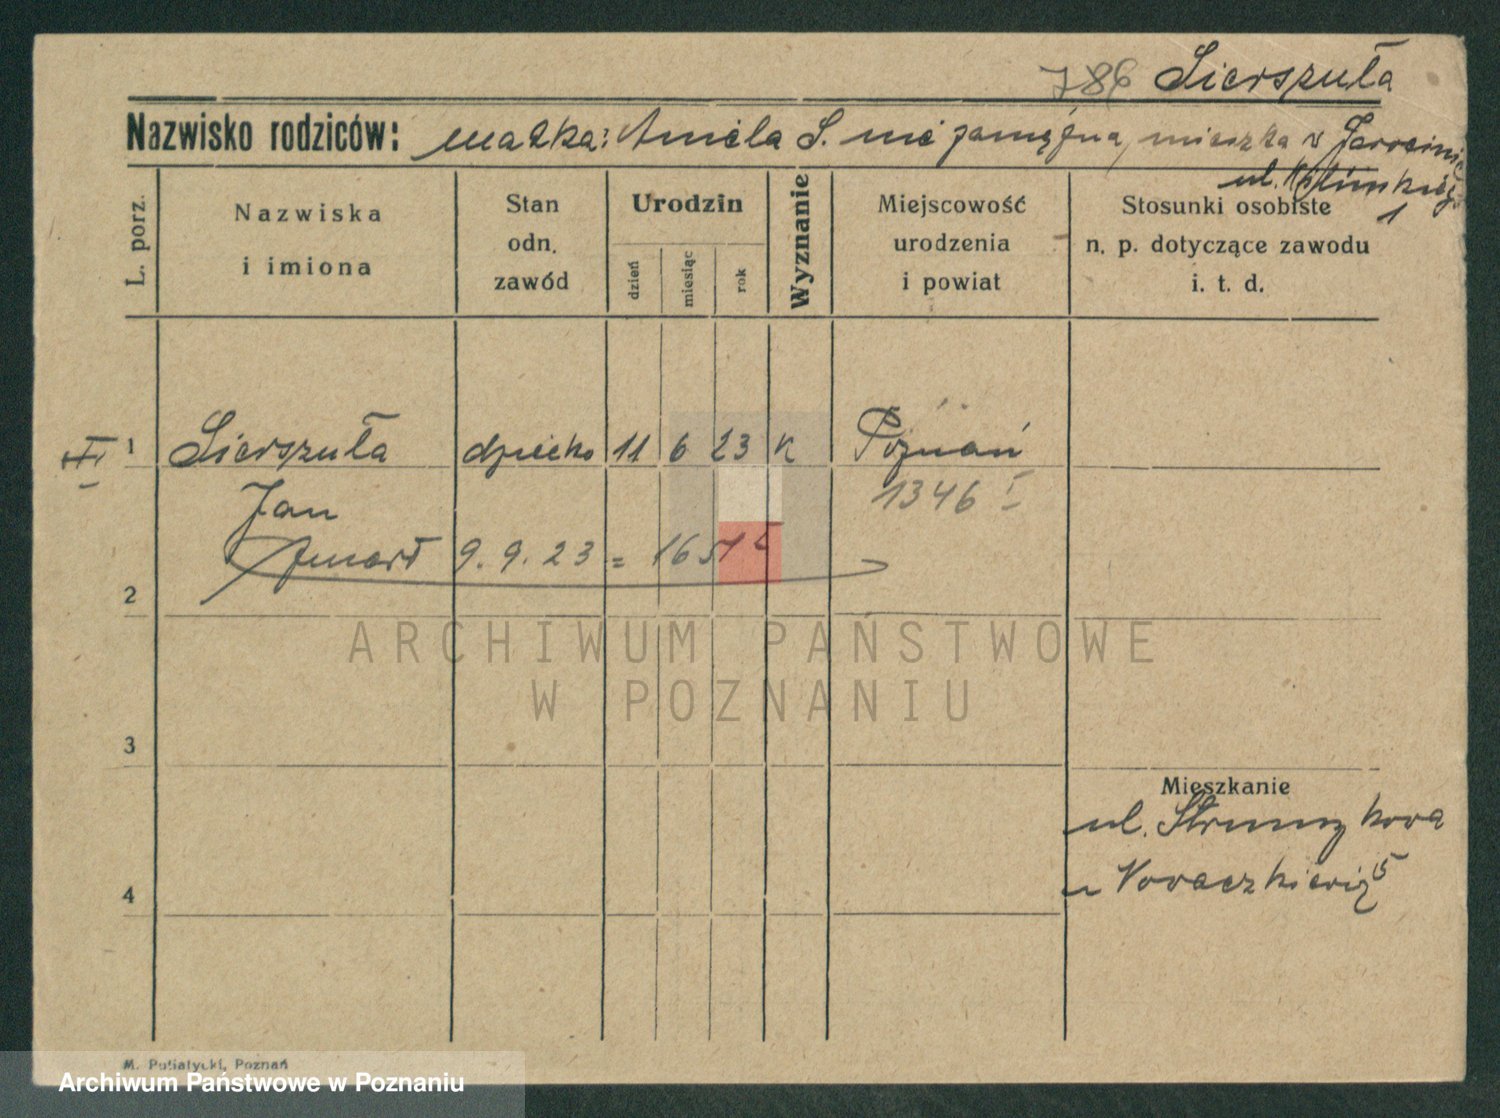 786 Sierszuła
Nazwisko rodziców: matka: Aniela S. nie zamężna, mieszka w Jarocinie
ul. 1
L. porz.
Nazwiska
i imiona
Stan
odn.
zawód
Urodzin
dzień
miesiąc
rok
Wyznanie
Miejscowość
urodzenia
i powiat
Stosunki osobiste
n. p. dotyczące zawodu
i. t. d.
1 Sierszuła dziecko 11 6 23 K Poznań
Jan 1346 I
zmarł 9. 9. 23 = 1651
2
ARCHIWUM PAŃSTWOWE
W POZNANIU
3
Mieszkanie
ul. Strumykowa
u 5
4
M. Putiatycki, Poznań
Archiwum Państwowe w Poznaniu